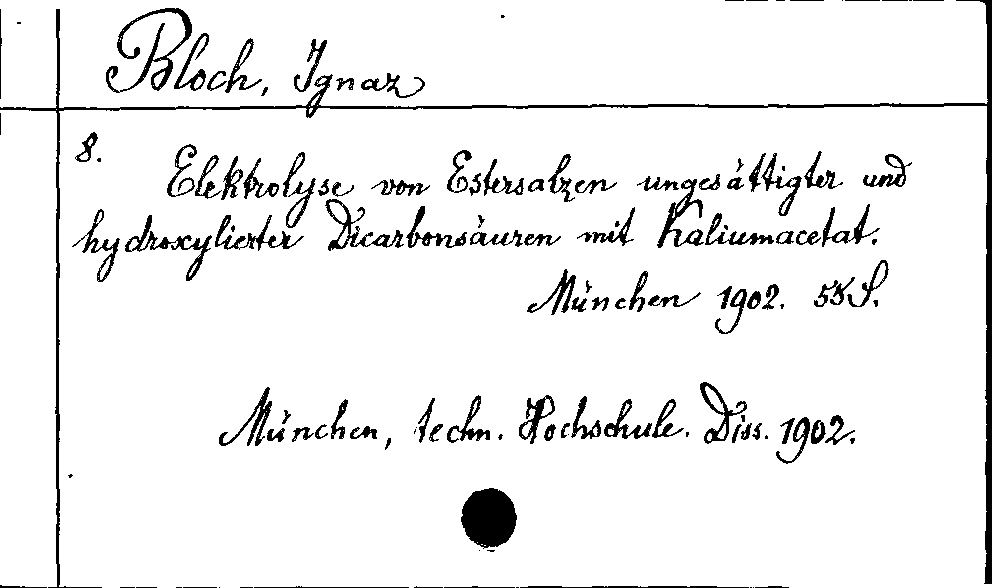 Bloch, Ignaz
8.
Elektrolyse von Estersalzen ungesättigter und
hydroxylierter Dicarbonsäuren mit Kaliumacetat.
München 1902. 55 S.
München, techn. Hochschule. Diss. 1902.